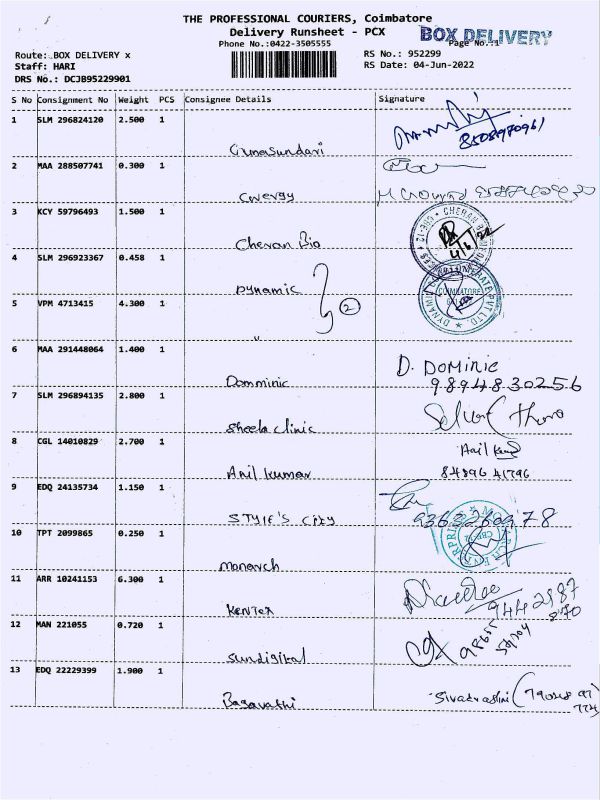 THE PROFESSIONAL COURIERS, Coimbatore
Delivery Runsheet - PCX
BOX DELIVERY
Phone No.:0422-3505555
Page No.:1
Route: BOX DELIVERY x
RS No.: 952299
Staff: HARI
RS Date: 04-Jun-2022
DRS No.: DCJB95229901
S No Consignment No Weight PCS Consignee Details Signature
1 SLM 296824120 2.500 1
Gunasundari 8508970961
2 MAA 288507741 0.300 1
3 KCY 59796493 1.500 1
Cheran Bio 4/6/22
4 SLM 296923367 0.458 1
Dynamic
COIMBATORE
5 VPM 4713415 4.300 1
" 2
6 MAA 291448064 1.400 1
Domminic D. DOMINIC
9894830256
7 SLM 296894135 2.800 1
Sheela clinic
8 CGL 14010829 2.700 1
Anil kumar Anil
84896 41796
9 EDQ 24135734 1.150 1
STYLE'S CITY
10 TPT 2099865 0.250 1
Monarch
11 ARR 10241153 6.300 1
KENTEX
12 MAN 221055 0.720 1
Sundigital
13 EDQ 22229399 1.900 1
Bagavathi